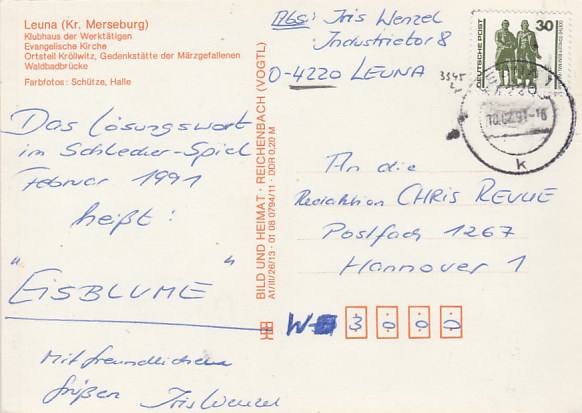 Leuna (Kr. Merseburg)
Klubhaus der Werktätigen
Evangelische Kirche
Ortsteil Kröllwitz, Gedenkstätte der Märzgefallenen
Waldbadbrücke
Farbfotos: Schütze, Halle
Das Lösungswort
im Schlecker-Spiel
Februar 1991
heißt:
"EISBLUME"
Mit freundlichen
Grüßen Iris Wenzel
BILD UND HEIMAT · REICHENBACH (VOGTL)
A1/III/26/13 · 01 08 0794/11 · DDR 0,20 M
Abs.: Iris Wenzel
Industrietor 8
O-4220 LEUNA
DEUTSCHE POST
30
LEUNA 1
4220
k
An die
Redaktion CHRIS REVUE
Postfach 1267
Hannover 1
W- 3000